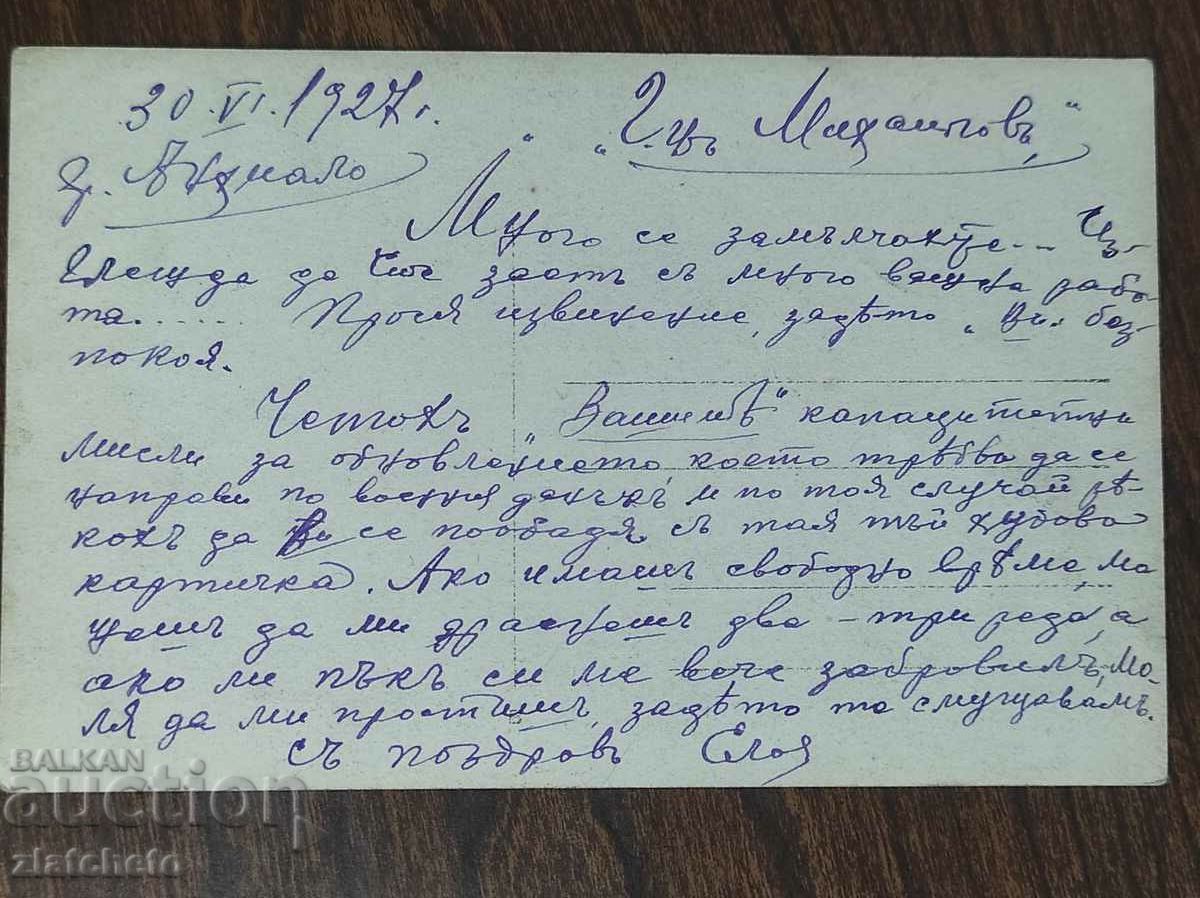 30. VI. 1927 г.
„Г-нъ Михаиловъ“
гр.
Много се замълчахте... Из-
глежда да сте заетъ съ много важна рабо-
та...... Прося извинение, задѣто „Ви“ без-
покоя.
Четохъ „Вашитѣ“ капацитетни
мисли за обновлението което трѣбва да се
направи по военния данъкъ и по тоя случай рѣ-
кохъ да Ви се пообадя съ тая тъй хубава
картичка. Ако имашъ свободно врѣме, мо
жешъ да ми драснешъ два-три реда, а
ако ли пъкъ си ме вече забровилъ, мо-
ля да ми простишъ, задѣто те смущавамъ.
Съ поздравъ
BALKAN
auction
zlatcheto